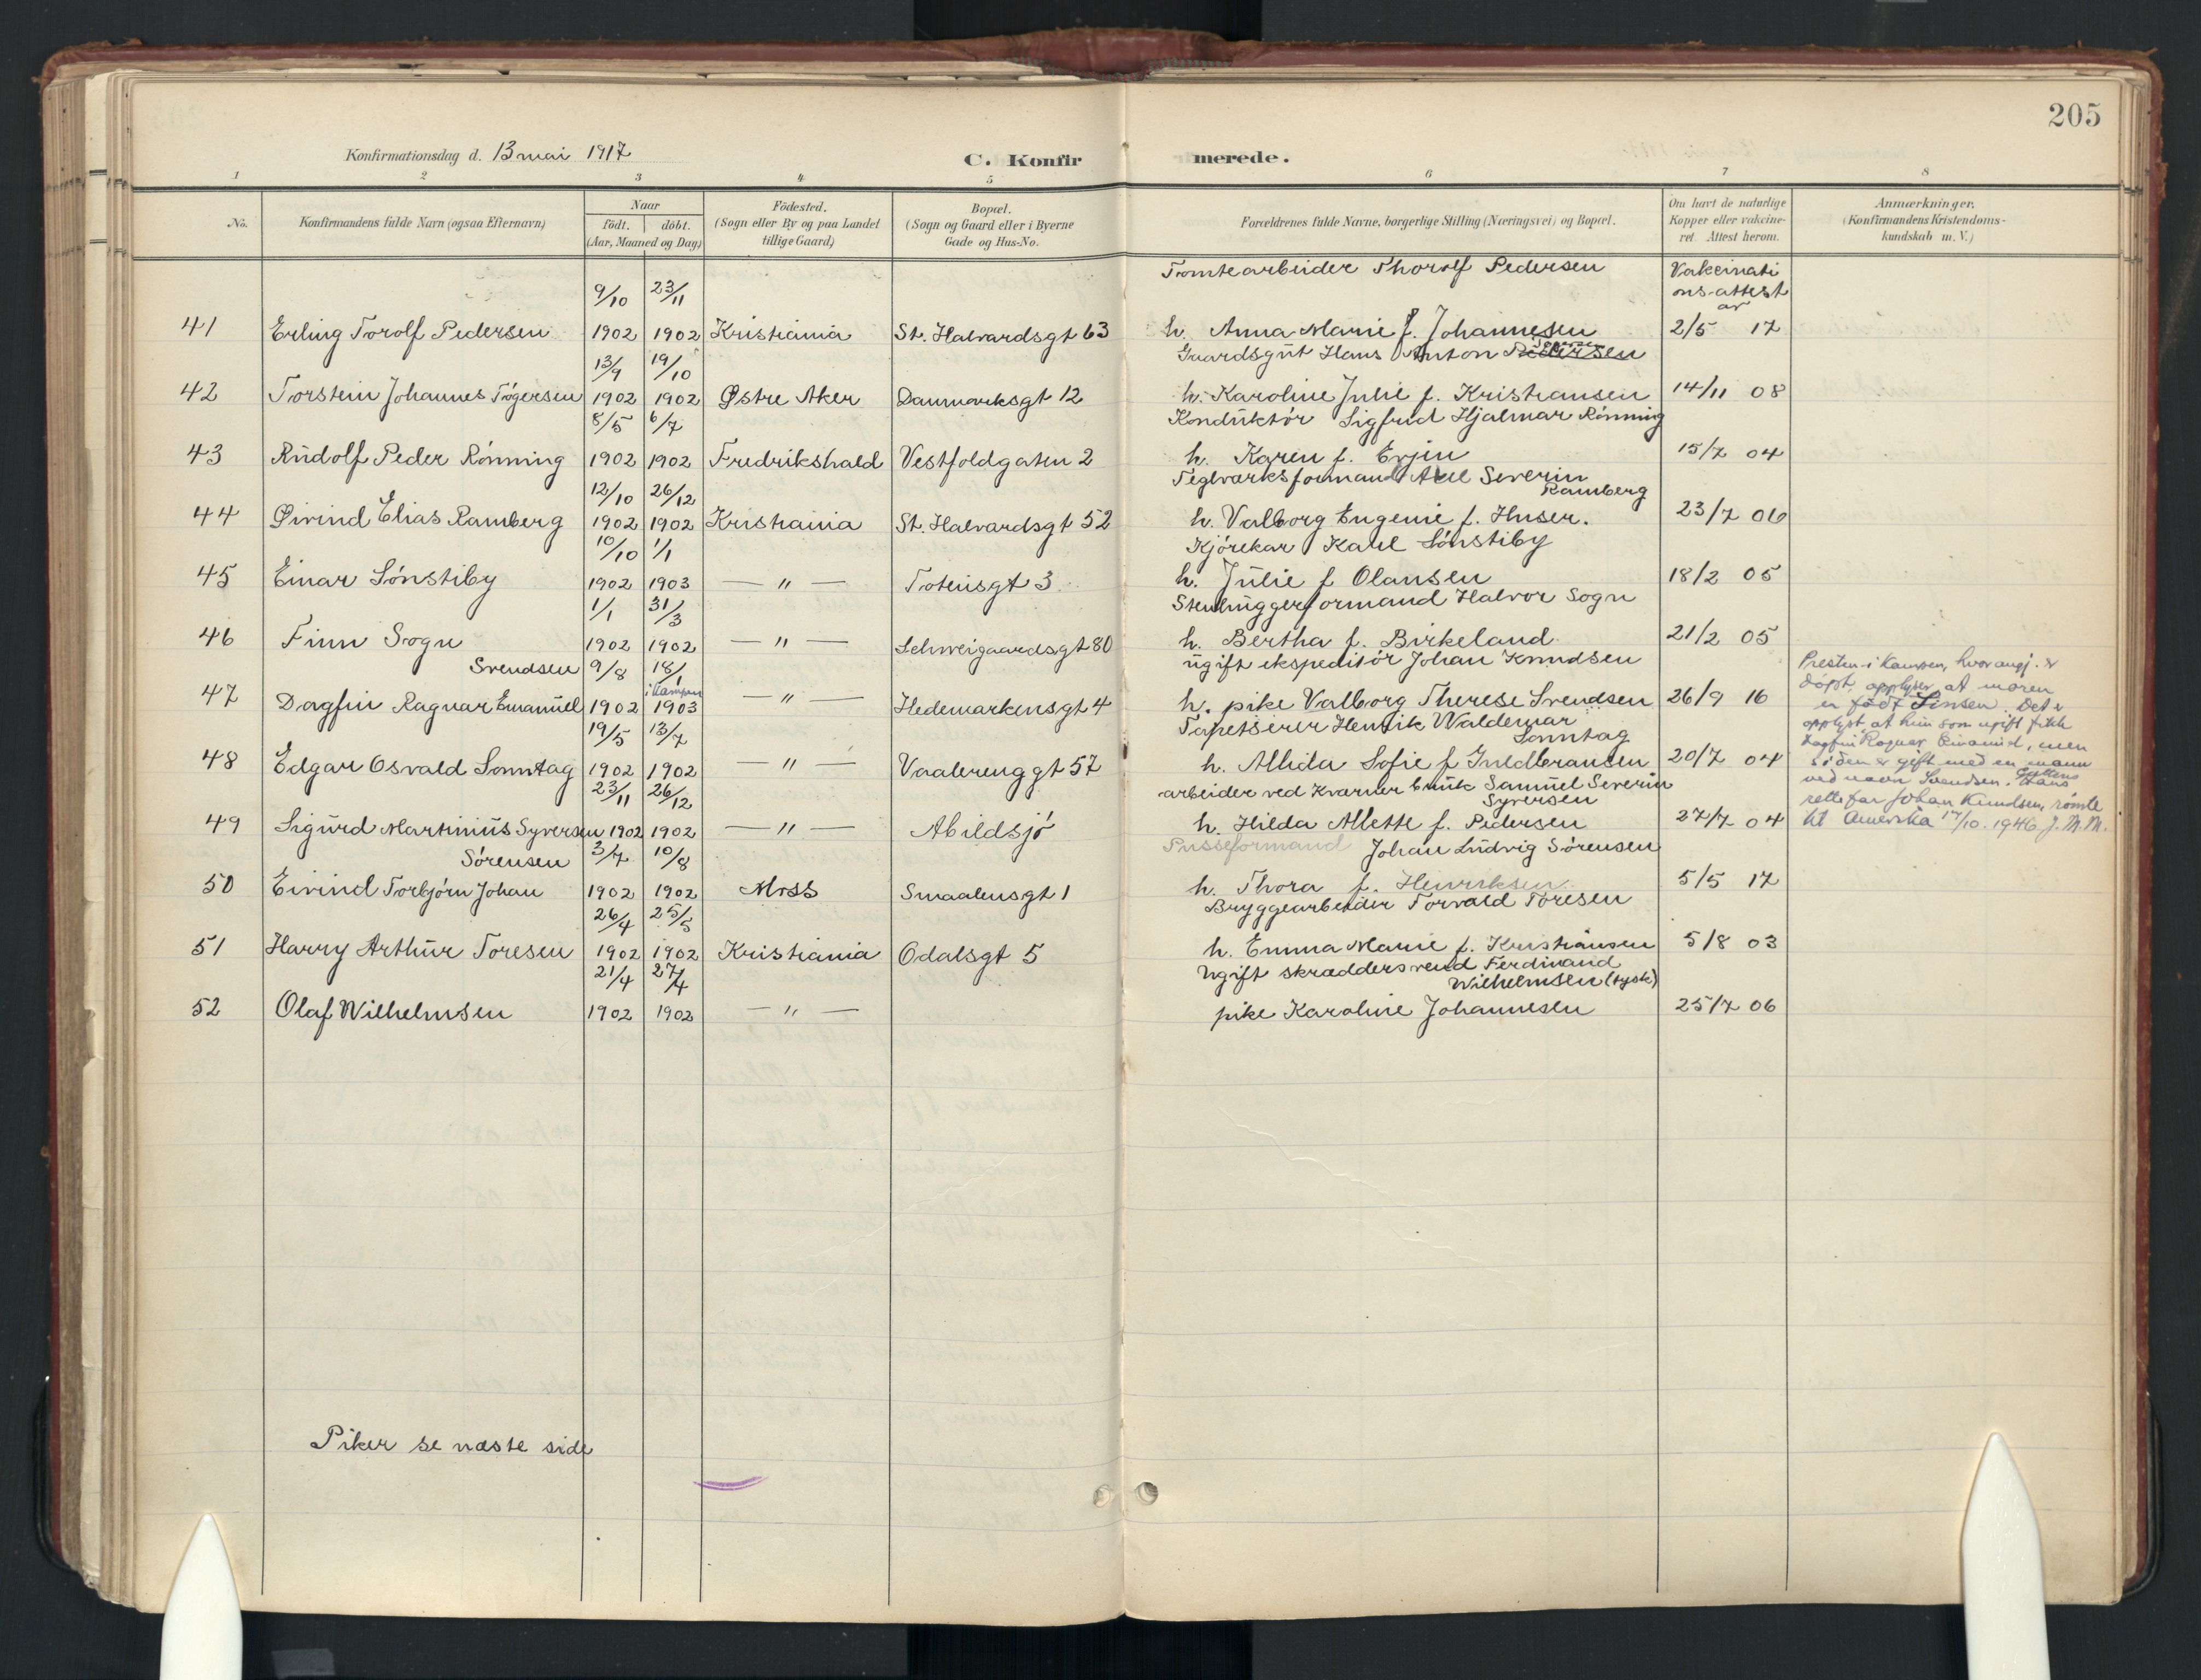 205
Konfirmationsdag d. 13 mai 1917
C. Konfirmerede.
1 2 3 4 5 6 7 8
No. Konfirmandens fulde Navn (ogsaa Efternavn) Naar födt. döbt. (Aar, Maaned og Dag) Födested. (Sogn eller By og paa Landet tillige Gaard) Bopæl. (Sogn og Gaard eller i Byerne Gade og Hus-No. Forældrenes fulde Navne, borgerlige Stilling (Næringsvei) og Bopæl. Om havt de naturlige Kopper eller vakcineret. Attest herom. Anmærkninger. (Konfirmandens Kristendomskundskab m. V.)
9/10 23/11 Tomtearbeider Thorolf Pedersen Vakcinationsattest av
41 Erling Torolf Pedersen 1902 1902 Kristiania St. Halvardsgt 63 h. Anna Marie f. Johannesen 2/5 17
13/9 19/10 Gaardsgut Hans Anton Pedersen
42 Torstein Johannes Tógersen 1902 1902 Østre Aker Danmarksgt 12 h. Karoline Julie f. Kristiansen 14/11 08
8/5 6/7 Konduktór Sigfred Hjalmar Rónning
43 Rudolf Peder Rónning 1902 1902 Fredrikshald Vestfoldgaten 2 h. Karen f. Erjen 15/7 04
12/10 26/12 Teglværksformand Axel Severin Ramberg
44 Øivind Elias Ramberg 1902 1902 Kristiania St. Halvardsgt 52 h. Valborg Eugenie f. Huser. 23/7 06
10/10 1/1 Kjórekar Karl Sónstiby
45 Einar Sónstiby 1902 1903 — " — Totensgt 3 h. Julie f Olausen 18/2 05
1/1 31/3 Stenhuggerformand Halvor Sogn
46 Finn Sogn 1902 1902 — " — Schweigaardsgt 80 h. Bertha f. Birkeland 21/2 05
Svendsen 9/8 18/1 ugift ekspeditór Johan Knudsen
47 Dagfin Ragnar Emanuel 1902 i Kampen 1903 — " — Hedemarkensgt 4 h. pike Valborg Therese Svendsen 26/9 16
Presten i Kampen, hvor angj. er
dópt, opplyser at moren
er fódt Jensen. Det er
opplyst at hun som ugift fikk
Dagfin Ragnar Emanuel, men
siden er gift med en mann
ved navn Svendsen. Guttens
rette far Johan Knudsen, rómte
til Amerika 17/10. 1946 J. M. M.
19/5 13/7 Tapetserer Henrik Waldemar Sonntag
48 Edgar Osvald Sonntag 1902 1902 — " — Vaalerenggt 57 h. Alhida Sofie f Guldbransen 20/7 04
23/11 26/12 arbeider ved Kværner bruk Samuel Severin Syversen
49 Sigurd Martinius Syversen 1902 1902 — " — Abildsjó h. Hilda Alette f. Pedersen 27/7 04
Sórensen 3/7 10/8 Pusseformand Johan Ludvig Sórensen
50 Eivind Torbjórn Johan 1902 1902 Moss Smaalensgt 1 h. Thora f. Henriksen 5/5 17
26/4 25/5 Bryggearbeider Torvald Toresen
51 Harry Arthur Toresen 1902 1902 Kristiania Odalsgt 5 h. Emma Marie f. Kristiansen 5/8 03
21/4 27/4 Ugift skræddersvend Ferdinand Wilhelmsen (tysk)
52 Olaf Wilhelmsen 1902 1902 — " — pike Karoline Johannesen 25/7 06
Piker se næste side